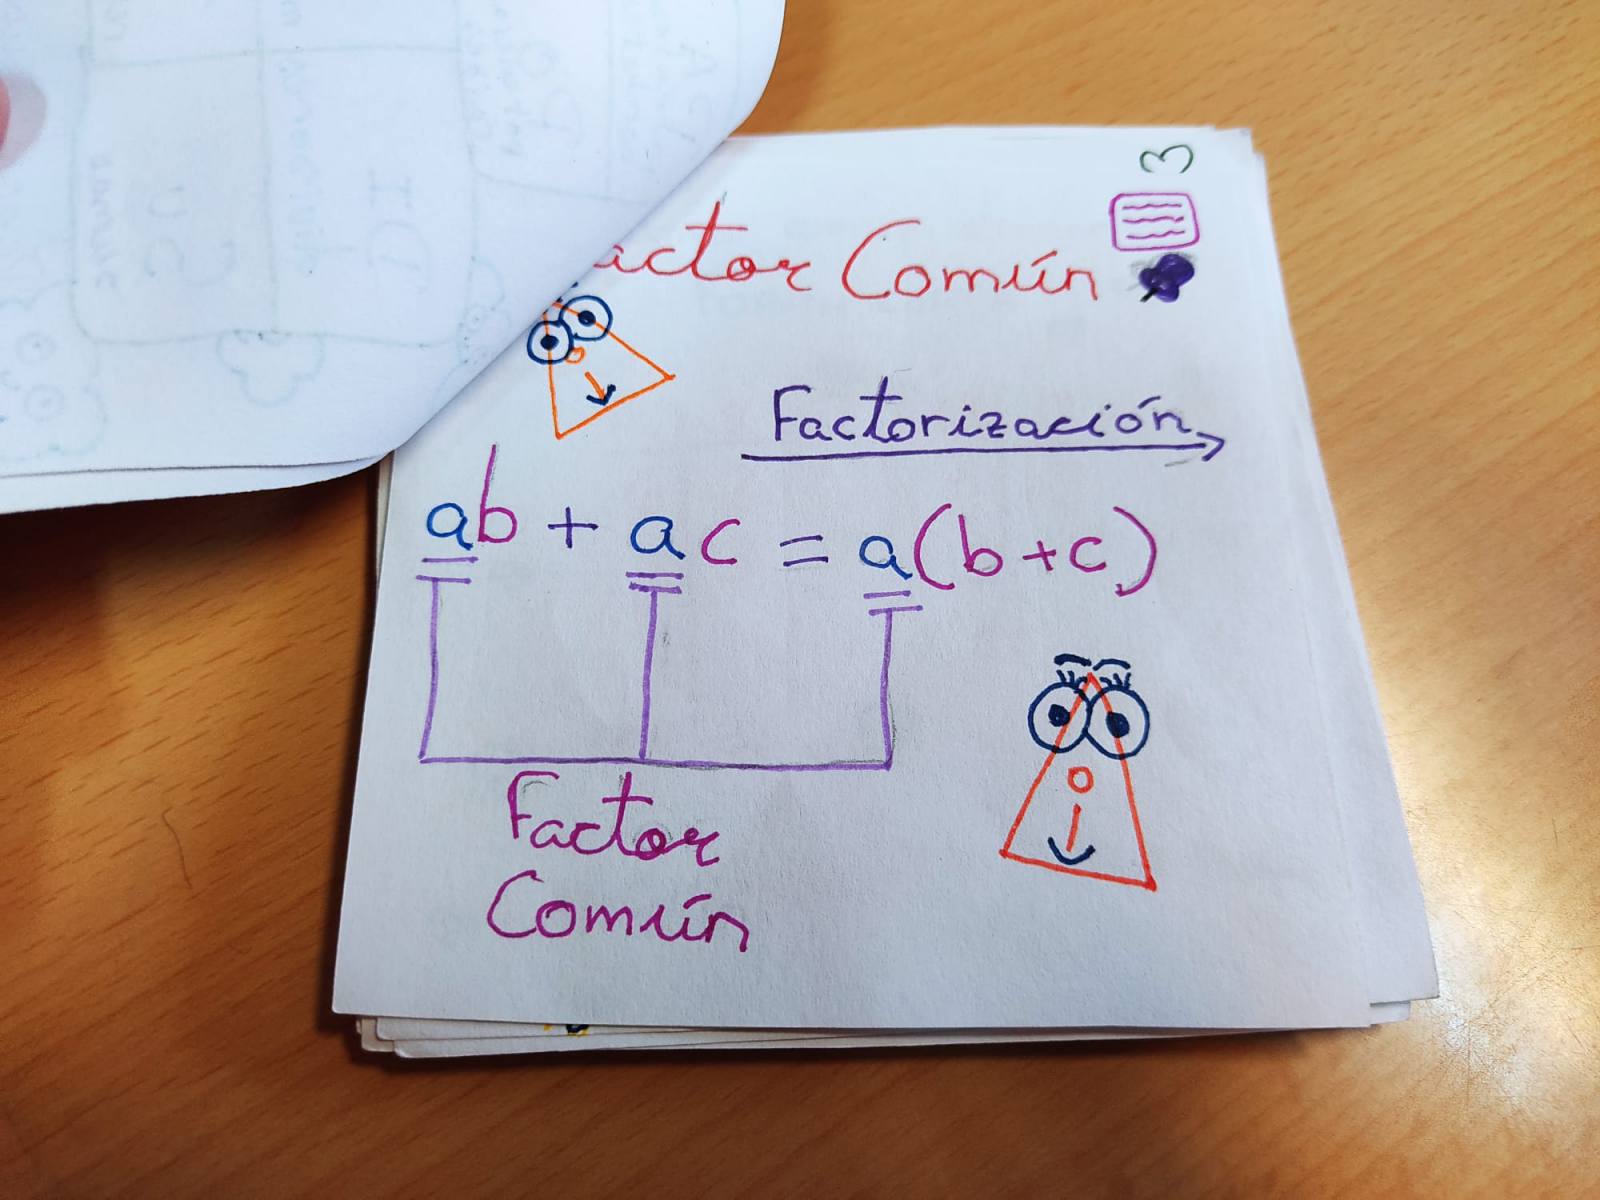 3
actor Común
Factorización
ab + ac = a(b+c)
Factor
Común